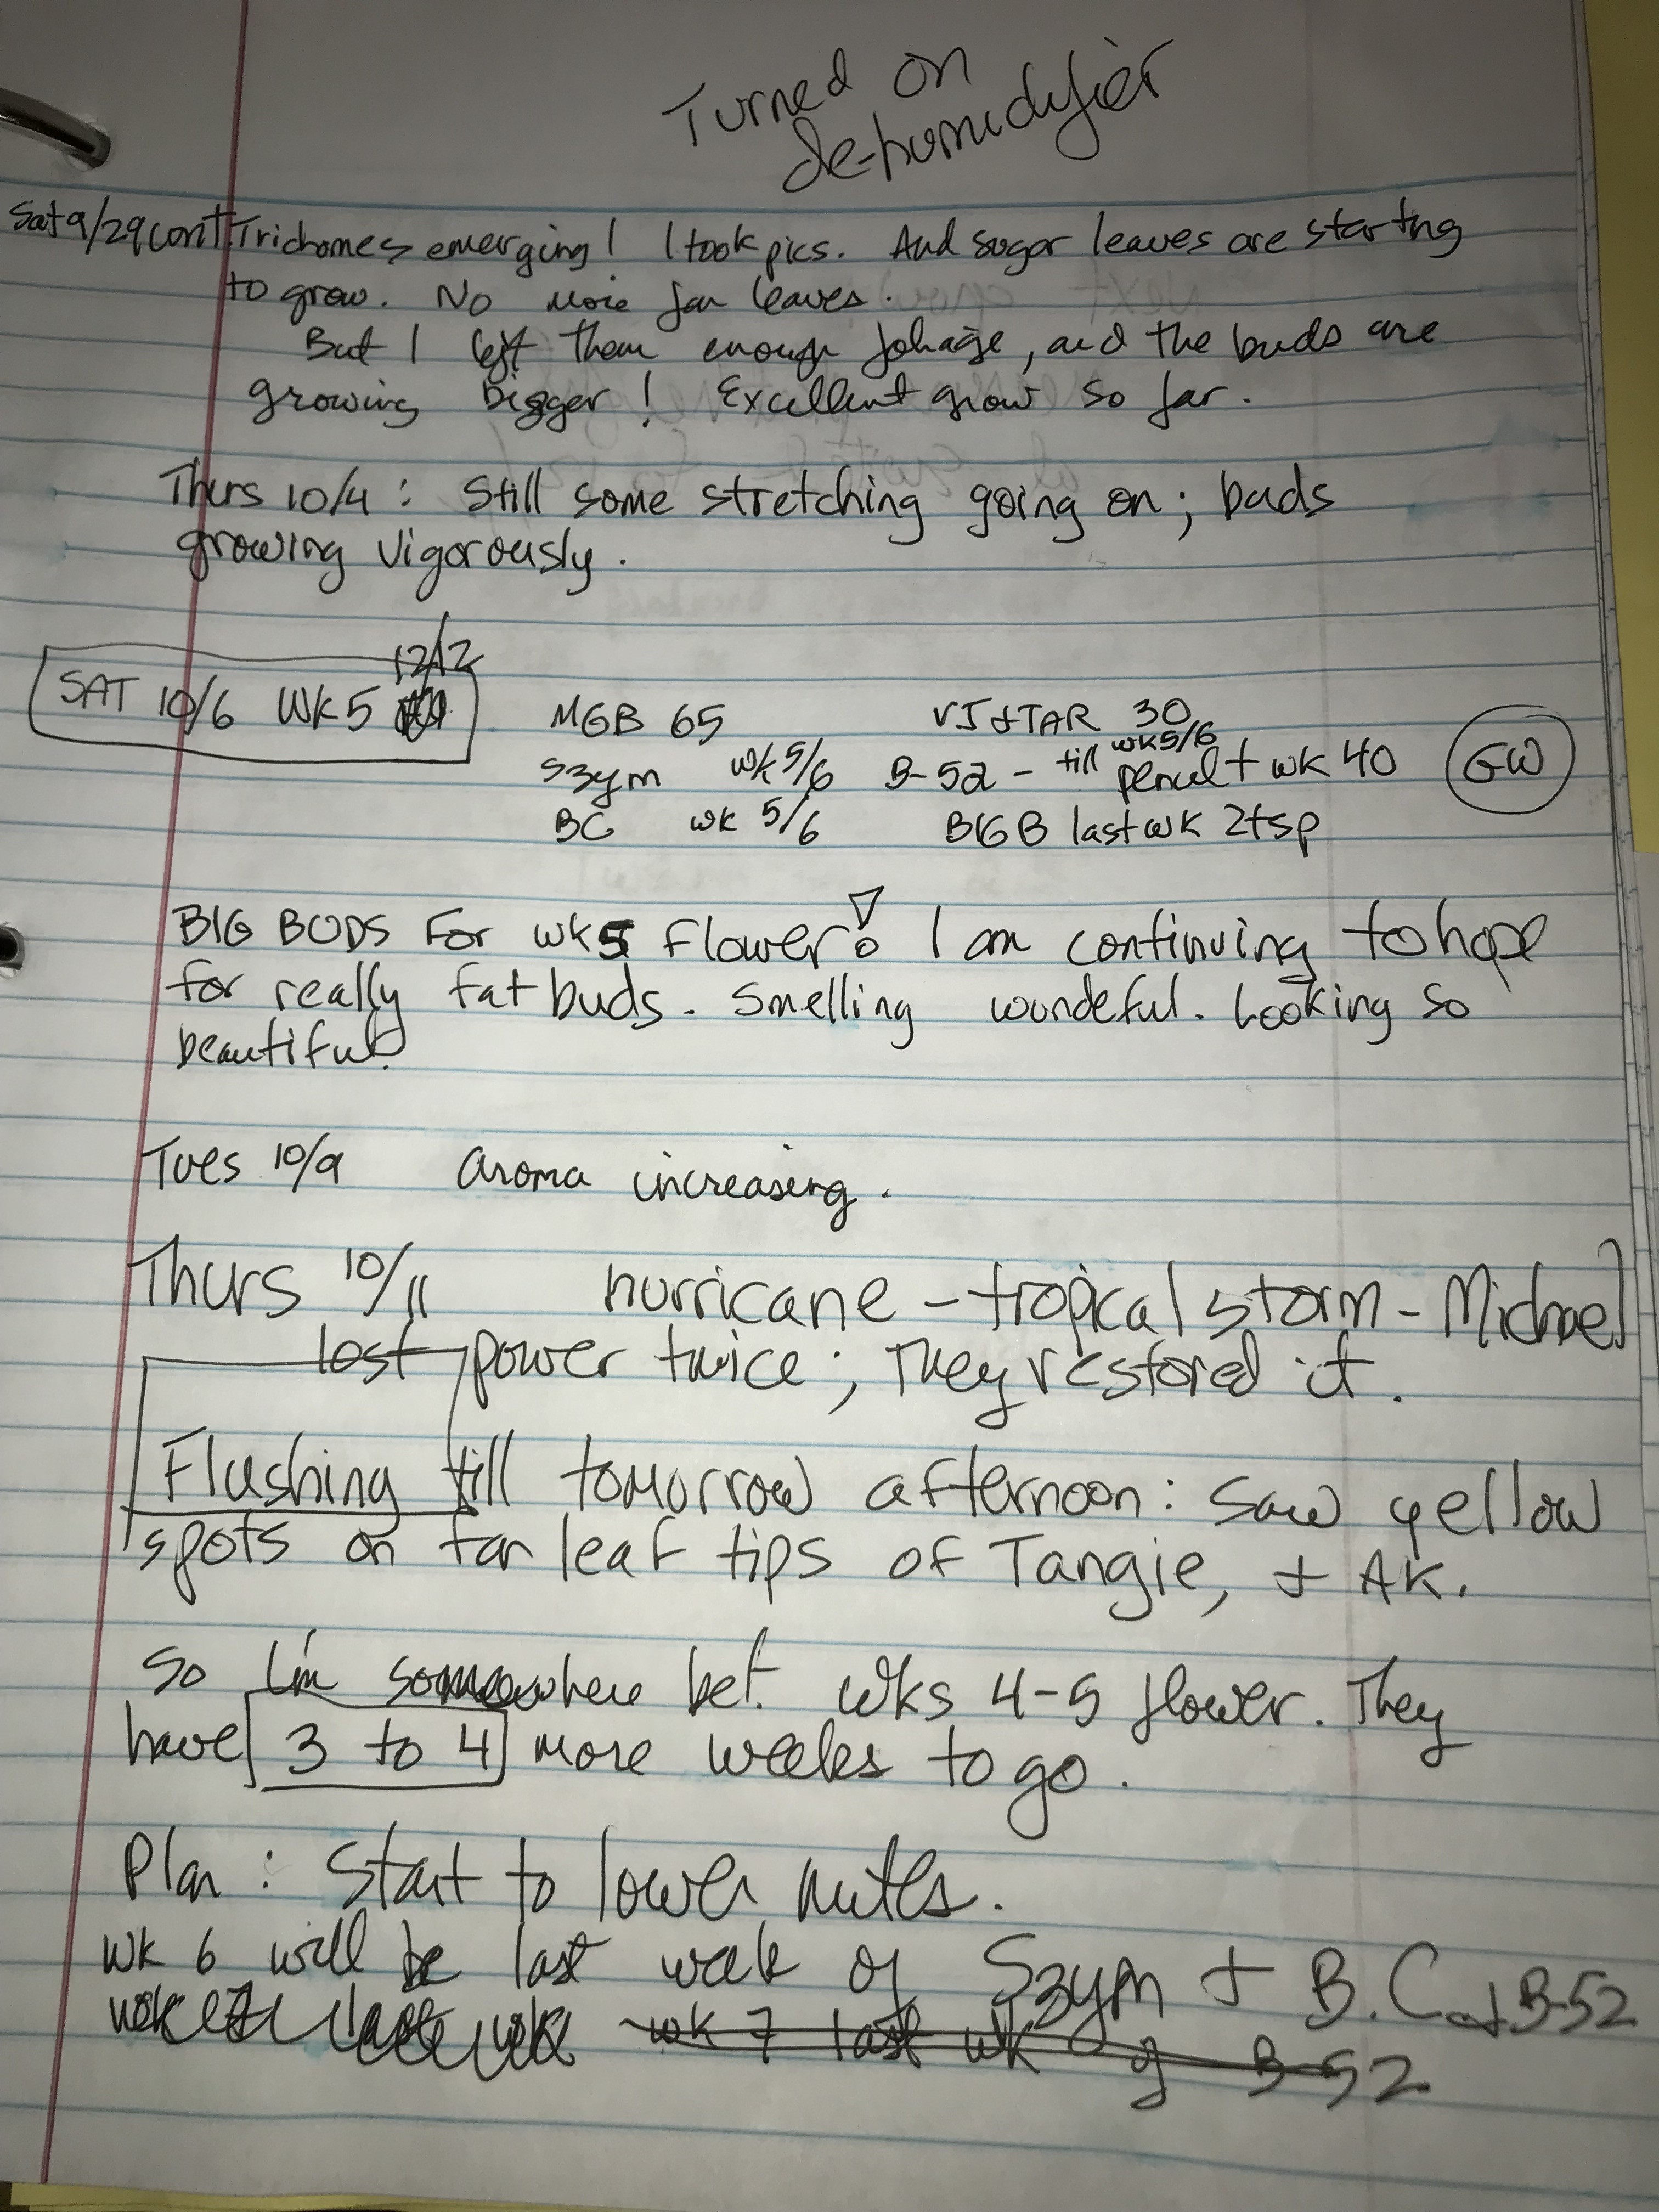 Turned on
dehumidifier
Sat 9/29 cont. Trichomes emerging! I took pics. And sugar leaves are starting
to grow. No more fan leaves.
But I left them enough foliage, and the buds are
growing bigger! Excellent grow so far.
Thurs 10/4: Still some stretching going on; buds
growing vigorously.
12/12
SAT 10/6 WK 5
MGB 65 VISTAR 30
Szym wk 5/6 B-52 - till wk 5/6 penult wk 40 GW
BC wk 5/6 BIG B last wk 2tsp
BIG BUDS FOR wk 5 Flower! I am continuing to hope
for really fat buds. Smelling wondeful. Looking so
beautiful.
Tues 10/9 Aroma increasing.
Thurs 10/11 hurricane - tropical storm - Michael
lost power twice; They restored it.
Flushing till tomorrow afternoon: saw yellow
spots on fan leaf tips of Tangie, + AK.
So I'm somewhere bet. wks 4-5 flower. They
have 3 to 4 more weeks to go.
Plan: Start to lower nutes.
wk 6 will be last week of Szym + B.C. + B-52
wk 7 last wk of B-52